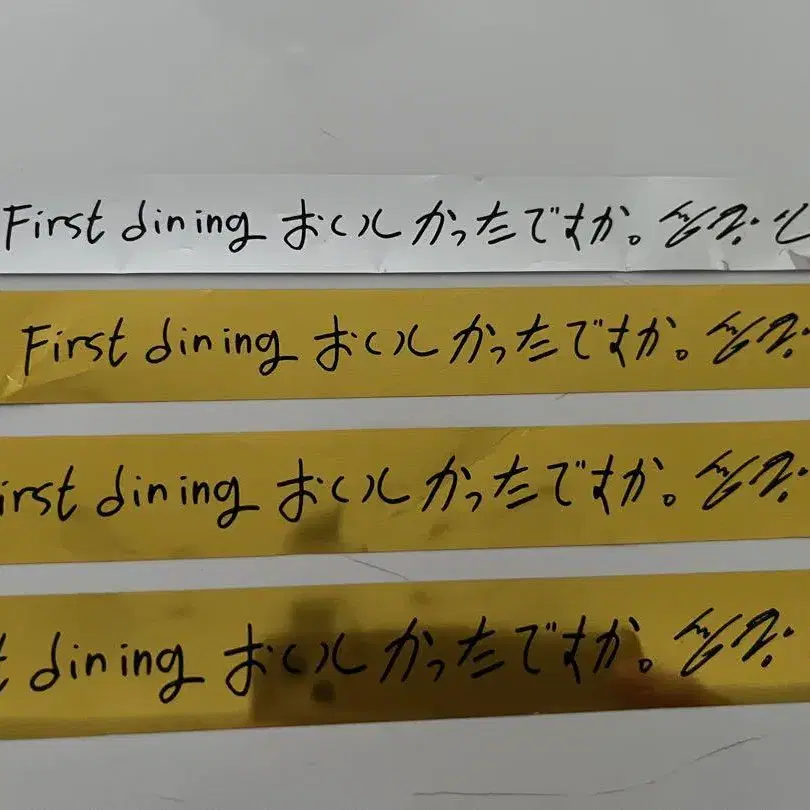 First dining おいしかったですか。
First dining おいしかったですか。
irst dining おいしかったですか。
t dining おいしかったですか。